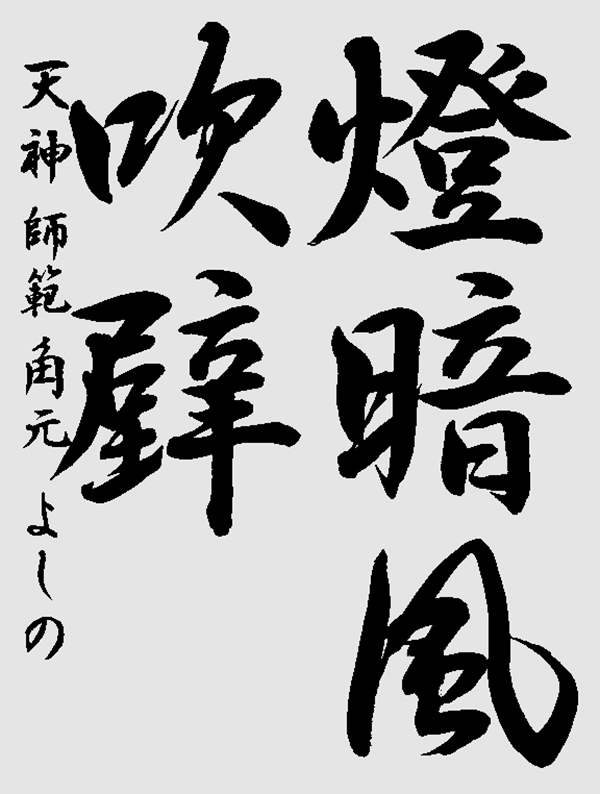 燈暗風
吹壁
天神 師範 角元 よしの